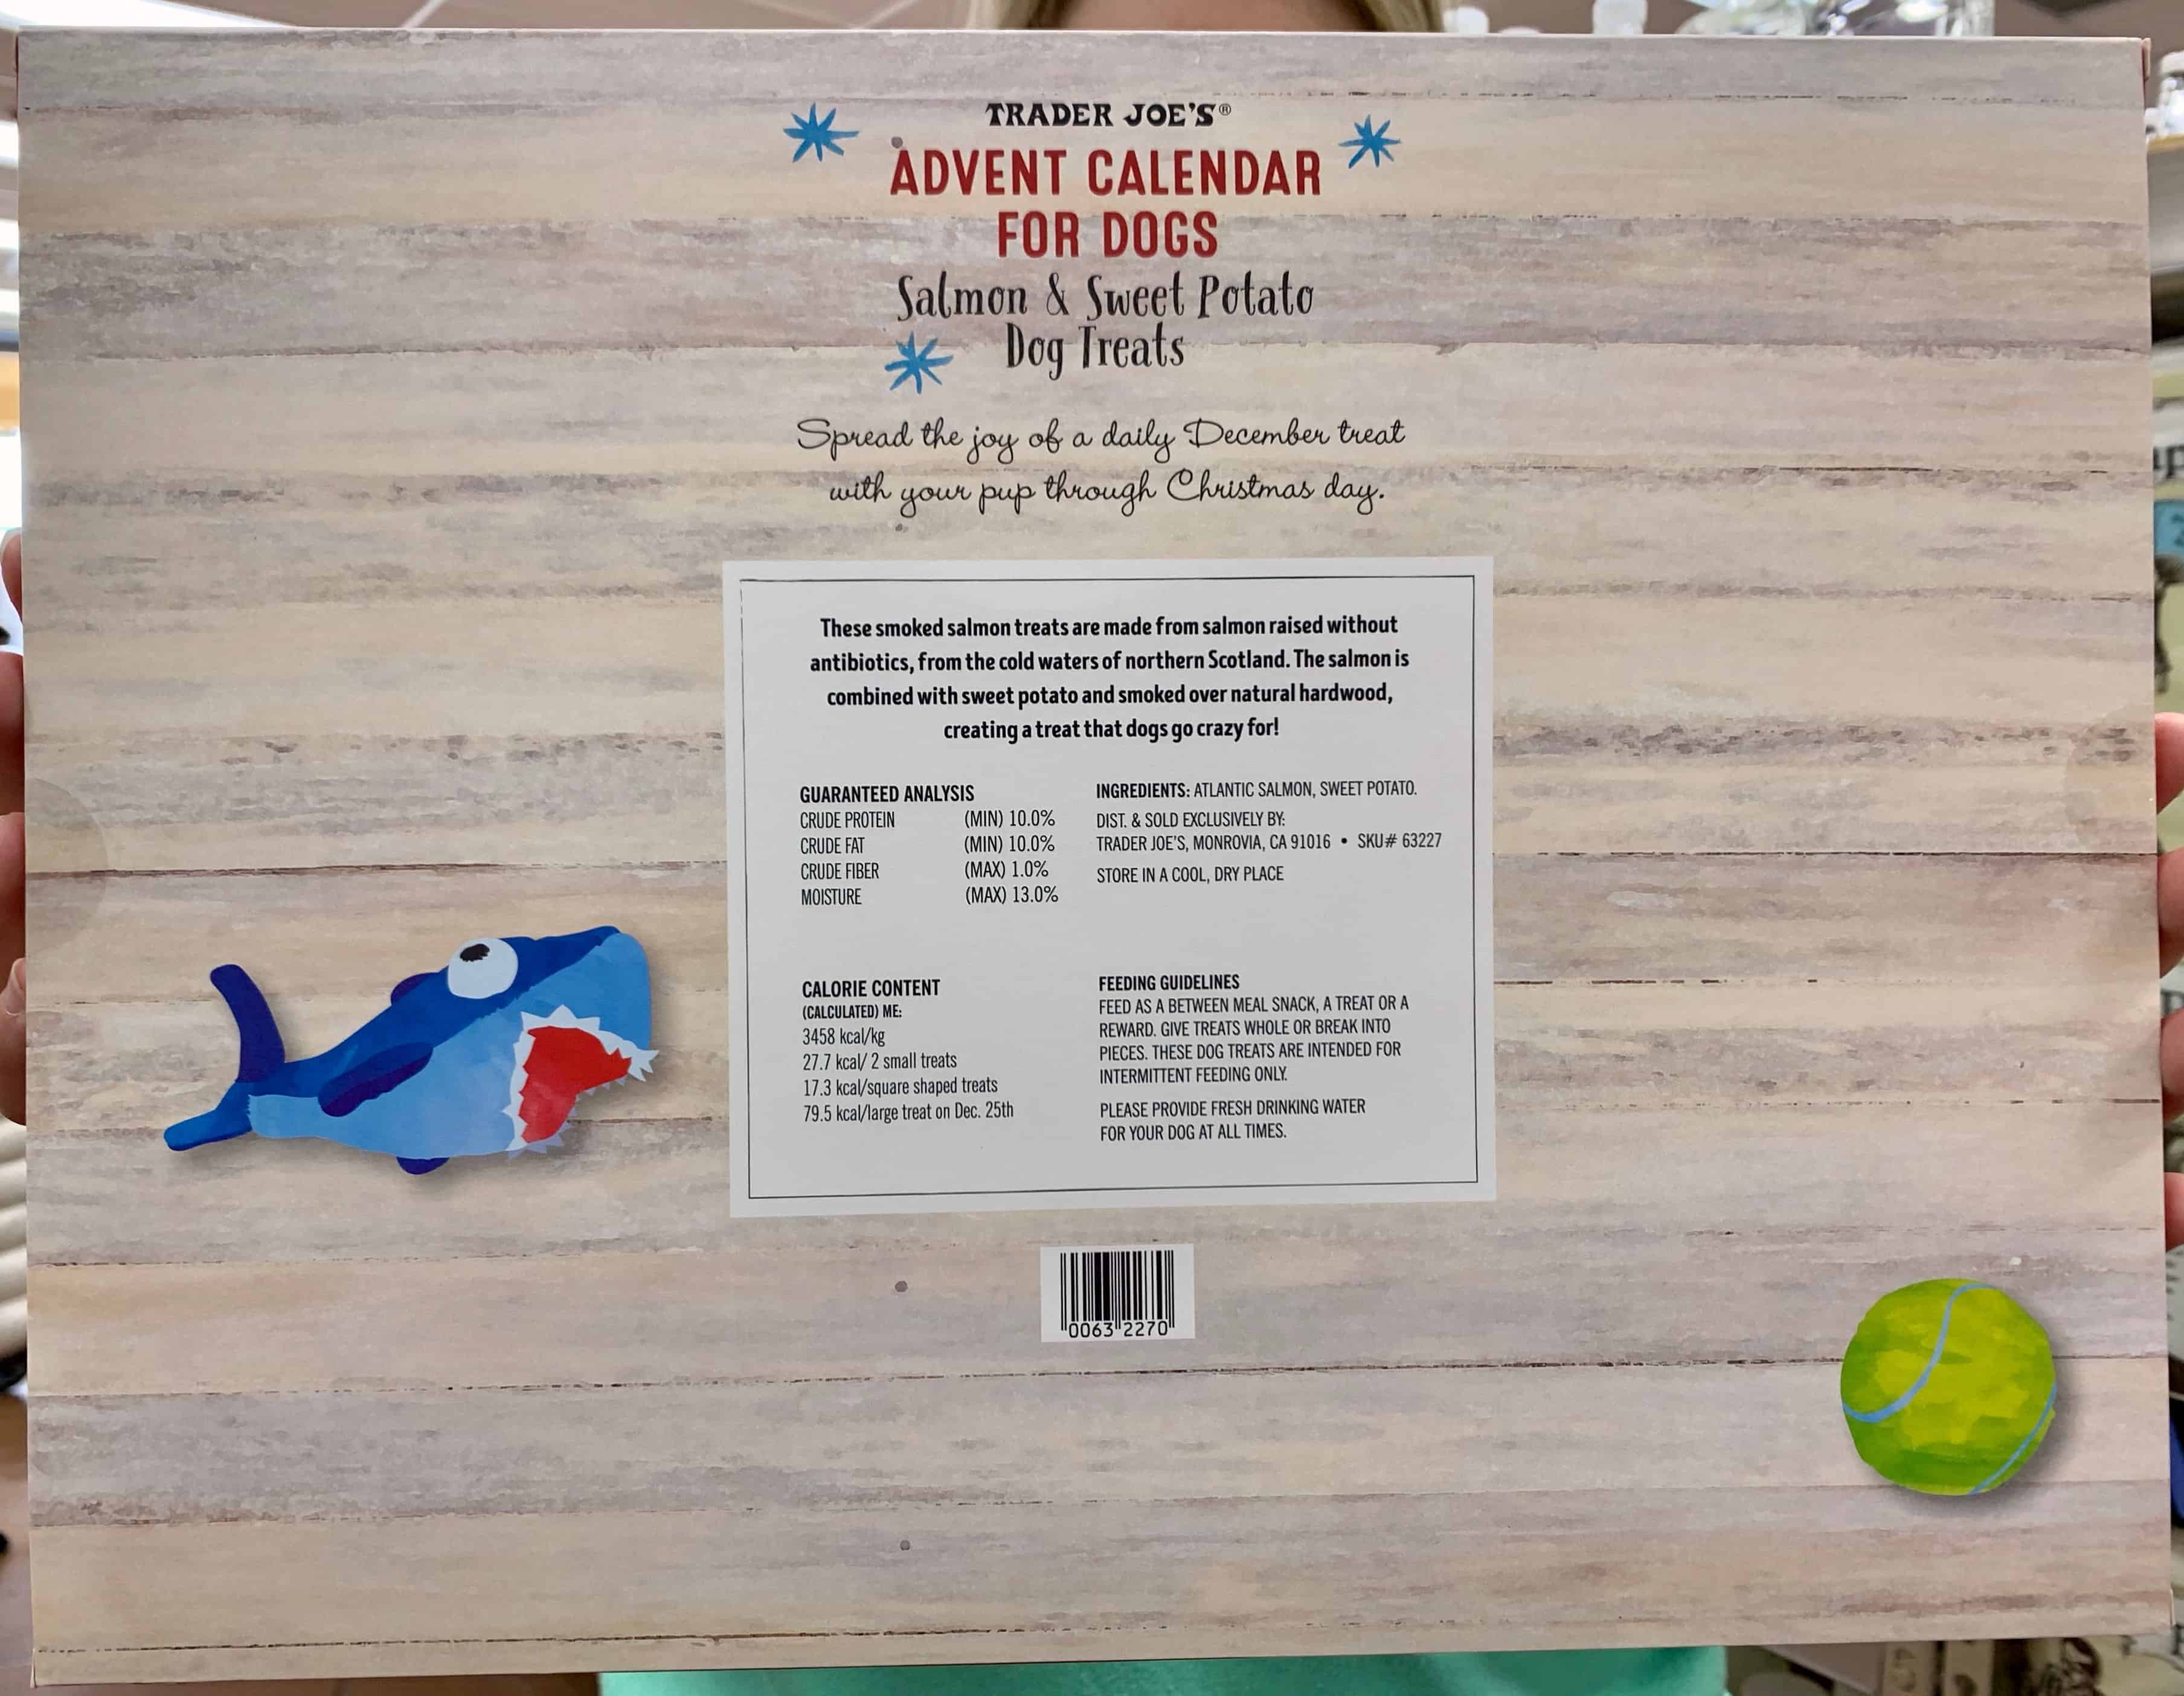 TRADER JOE'S®
ADVENT CALENDAR
FOR DOGS
Salmon & Sweet Potato
Dog Treats
Spread the joy of a daily December treat
with your pup through Christmas day.
These smoked salmon treats are made from salmon raised without
antibiotics, from the cold waters of northern Scotland. The salmon is
combined with sweet potato and smoked over natural hardwood,
creating a treat that dogs go crazy for!
GUARANTEED ANALYSIS
CRUDE PROTEIN (MIN) 10.0%
CRUDE FAT (MIN) 10.0%
CRUDE FIBER (MAX) 1.0%
MOISTURE (MAX) 13.0%
INGREDIENTS: ATLANTIC SALMON, SWEET POTATO.
DIST. & SOLD EXCLUSIVELY BY:
TRADER JOE'S, MONROVIA, CA 91016 • SKU# 63227
STORE IN A COOL, DRY PLACE
CALORIE CONTENT
(CALCULATED) ME:
3458 kcal/kg
27.7 kcal/ 2 small treats
17.3 kcal/square shaped treats
79.5 kcal/large treat on Dec. 25th
FEEDING GUIDELINES
FEED AS A BETWEEN MEAL SNACK, A TREAT OR A
REWARD. GIVE TREATS WHOLE OR BREAK INTO
PIECES. THESE DOG TREATS ARE INTENDED FOR
INTERMITTENT FEEDING ONLY.
PLEASE PROVIDE FRESH DRINKING WATER
FOR YOUR DOG AT ALL TIMES.
0063 2270